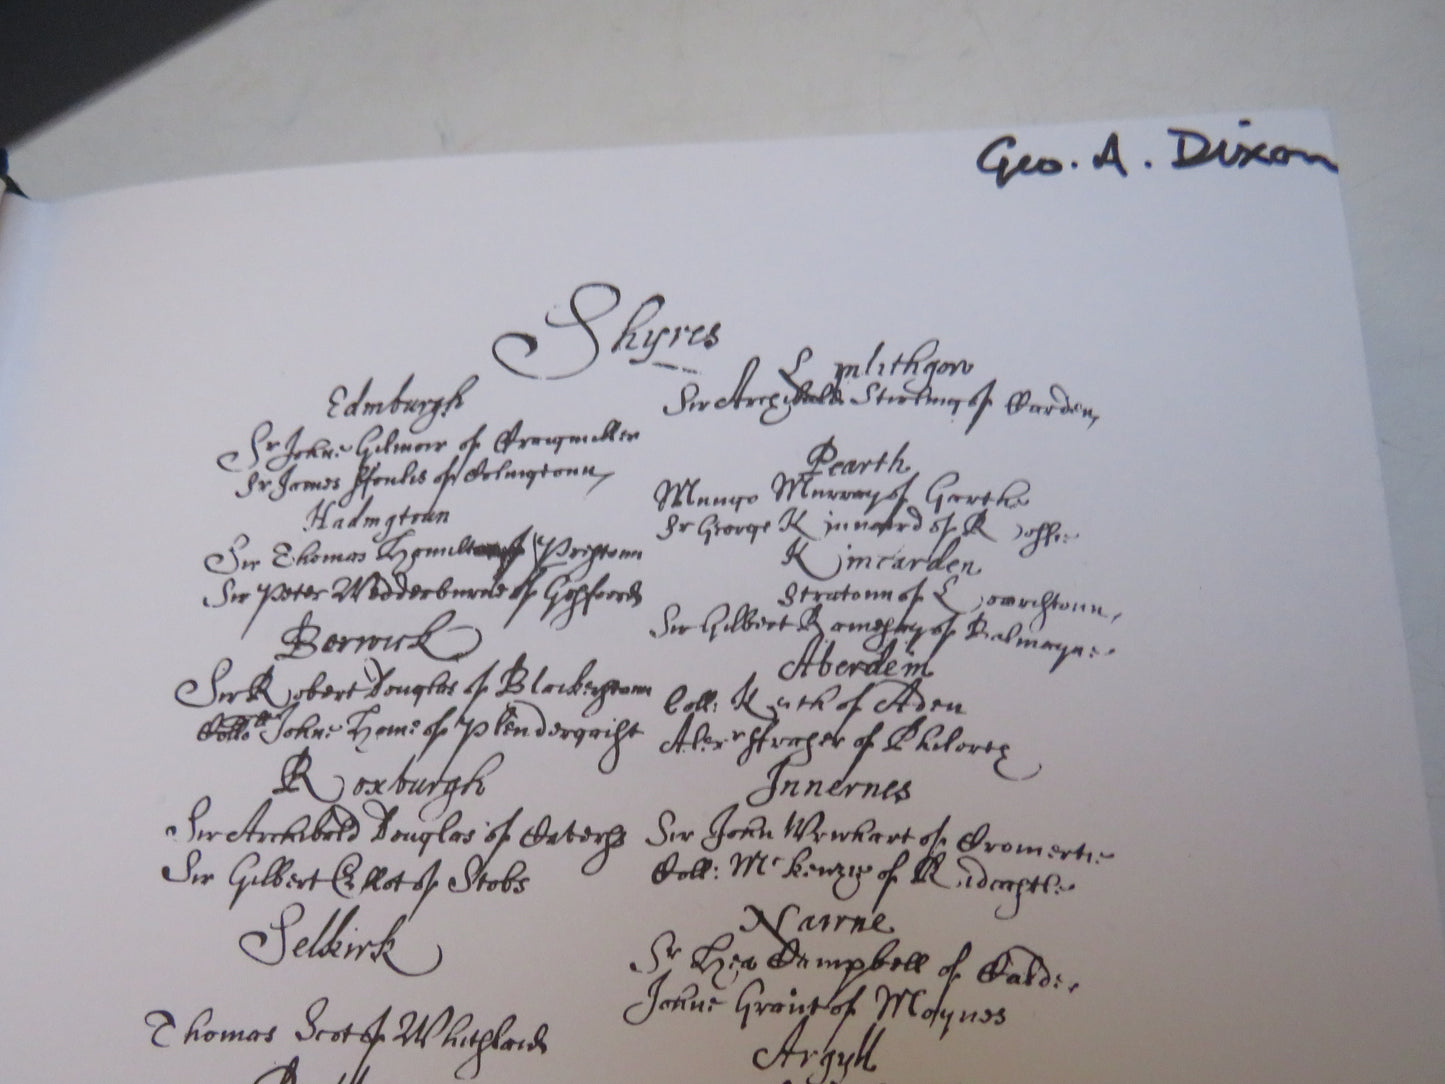 Geo. A. Dixon
Shyres
Edinburgh
Sr John Gilmoir of Craigmiller
Sr James ffoulis of Colingtoun,
Hadingtoun
Sir Thomas Hamilton of Prestoun
Sir Peter Wedderburne of Gosfoord
Berwick
Sir Robert Douglas of Blackerstoun
Coll: Johne Home of Plendergaist
Roxburgh
Sir Archibald Douglas of Caverss
Sir Gilbert Ellot of Stobs
Selkirk
Thomas Scot of Whitslaid
Linlithgow
Sir Archibald Stirling of Carden,
Pearth
Mungo Murray of Garth
Sr George Kinnaird of Rossie
Kincarden
Stratoun of
Sir Gilbert Ramsay of Balmayne
Aberdein
Coll: Keith of Aden
Alexr ffraser of Philorth
Innernes
Sir John Wrwhart of Cromertie
Coll: McKenzie of Kidcastle
Nairne
Sr Hew Campbell of Calder
Johne Grant of Moynes
Argyll